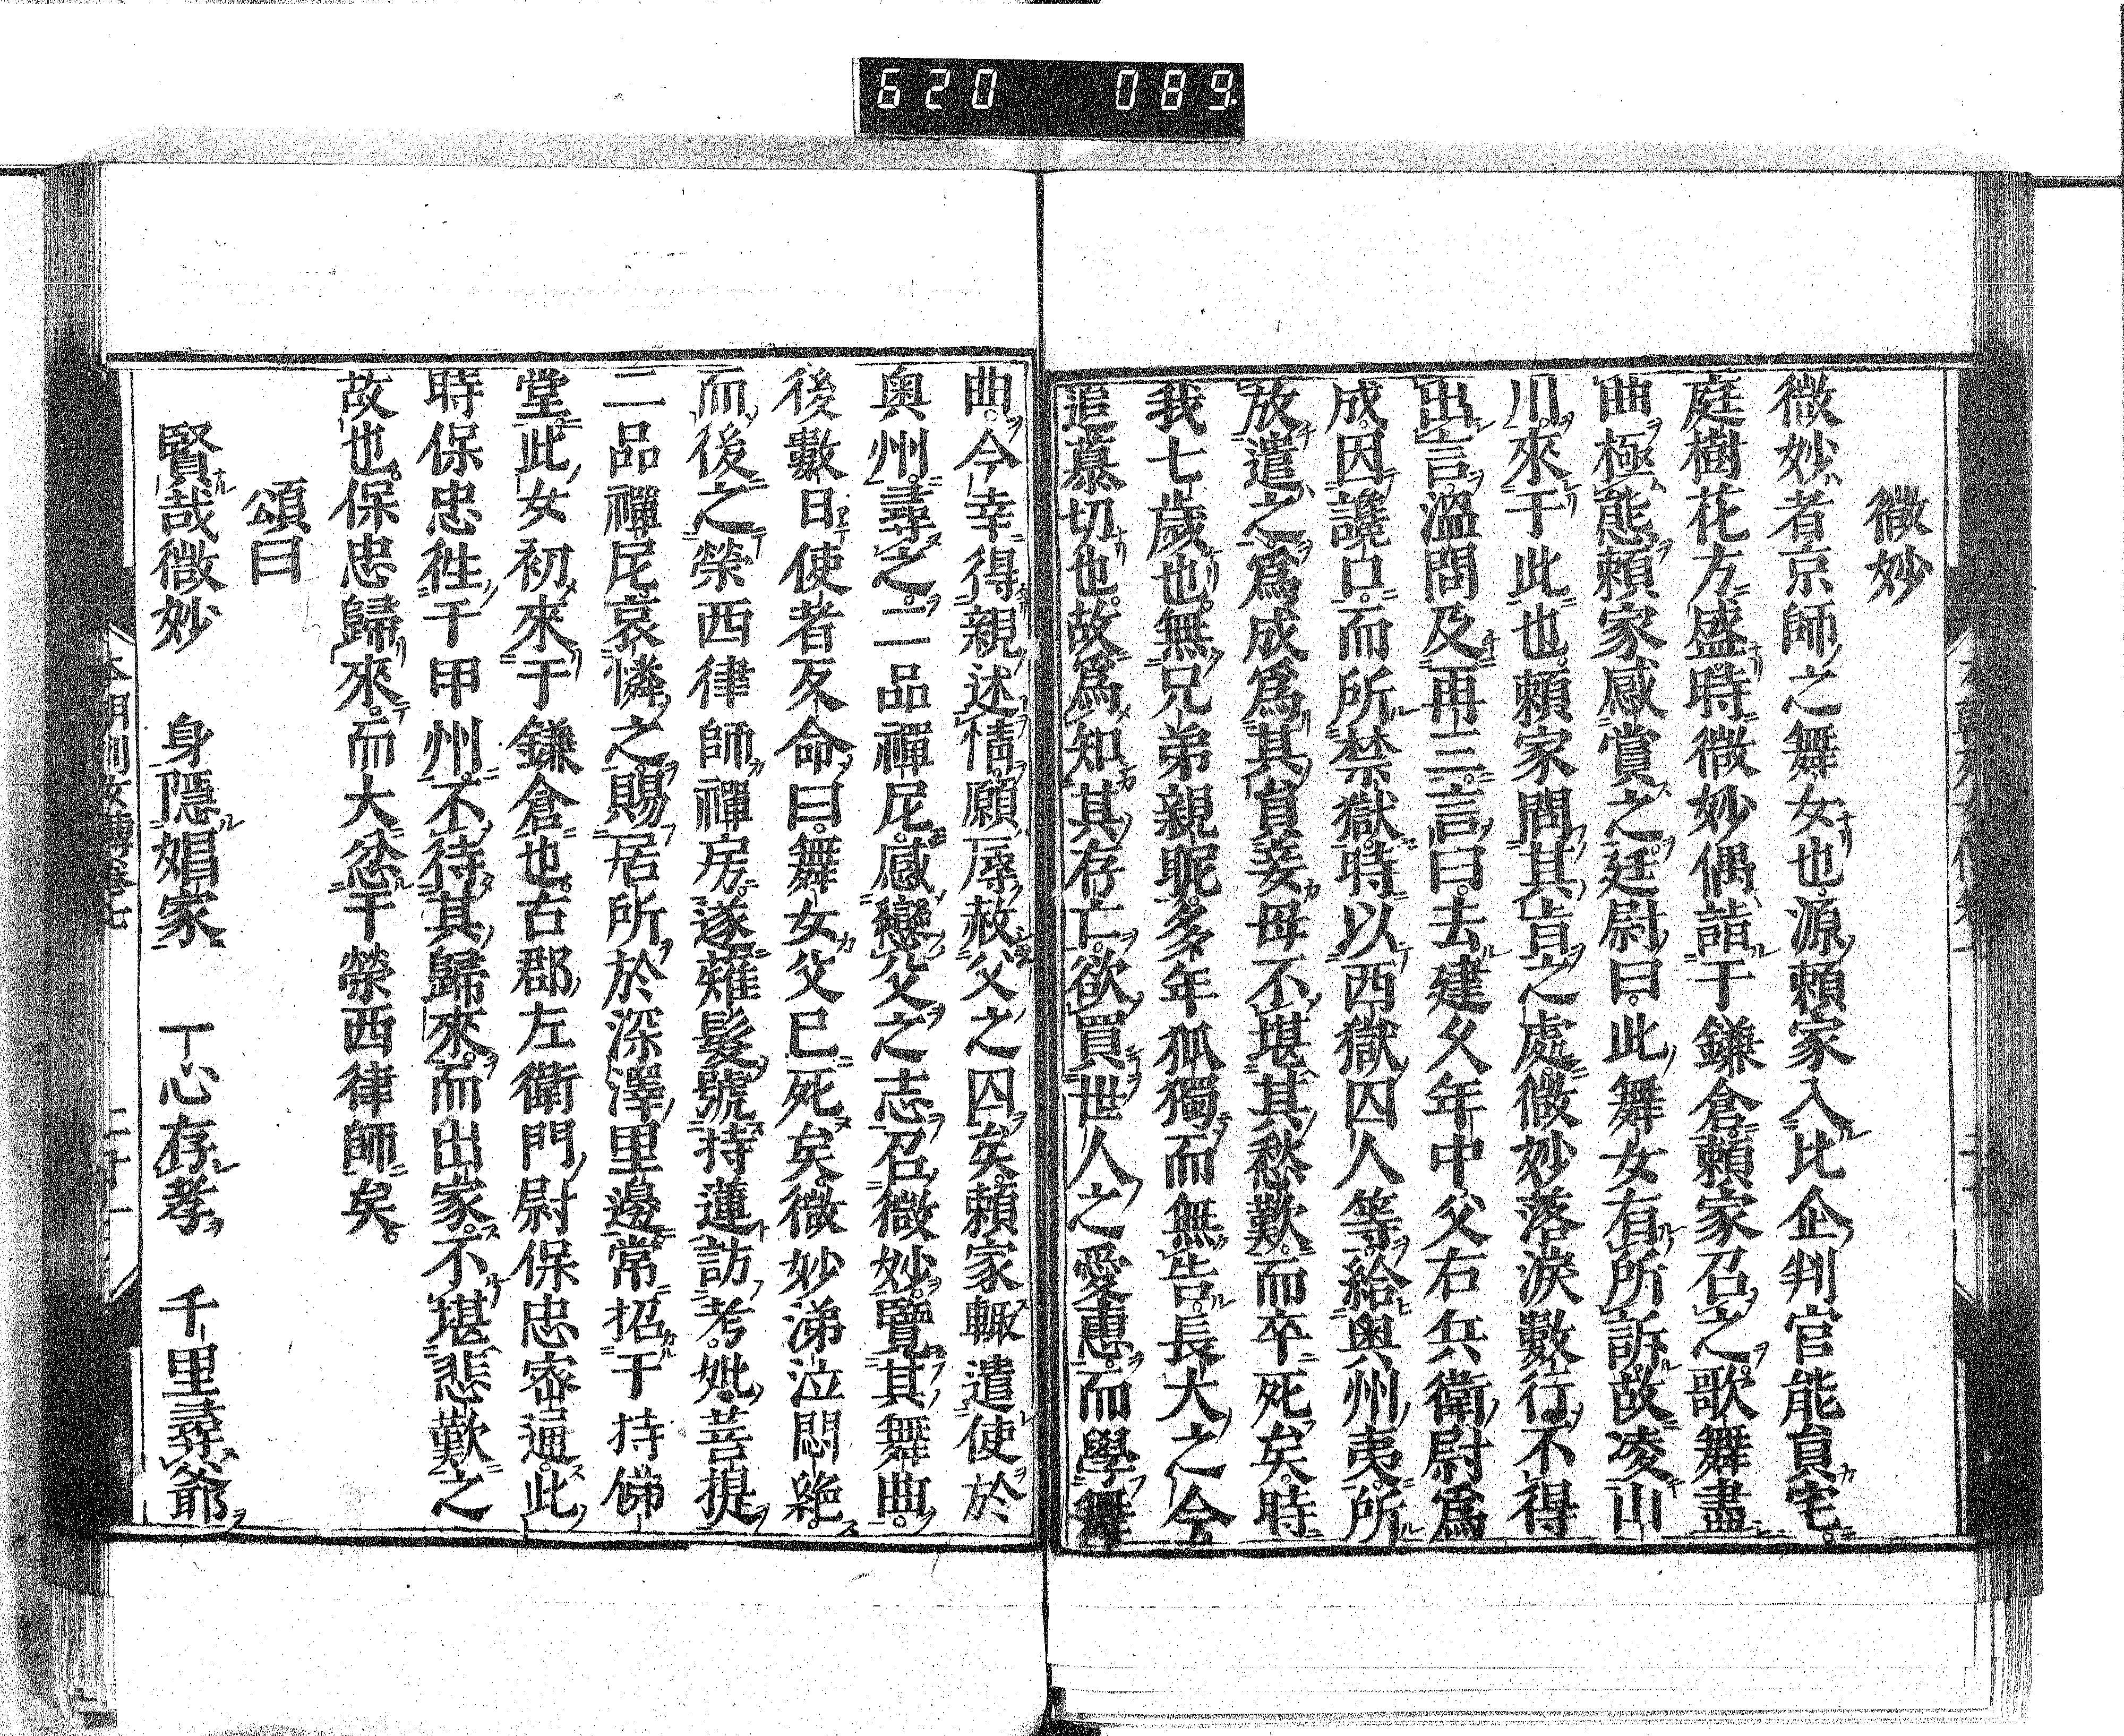 620 089
微妙
微妙者京師之舞女也源頼家入比企判官能員宅
庭樹花方盛時微妙偶詣于鎌倉頼家召之歌舞盡
曲極態頼家感賞之廷尉曰此舞女有所訴故凌山
川來于此也頼家問其旨之處微妙落淚數行不得
出言溫問及再三言曰去建久年中父右兵衛尉爲
成因讒口而所禁獄時以西獄囚人等給奥州夷所
放遣之爲成爲其員妾母不堪其愁歎而卒死矣時
我七歲也無兄弟親昵多年孤獨而無告長大之今
追慕切也故爲知其存亡欲買世人之愛惠而學舞
曲今幸得親述情願辱赦父之囚矣頼家輙遣使於
奥州尋之二品禪尼感戀父之志召微妙覽其舞曲
後數日使者反命曰舞女父已死矣微妙涕泣悶絶
而後之榮西律師禪房遂薙髮號持蓮訪考妣菩提
二品禪尼哀憐之賜居所於深澤里邊常招于持佛
堂此女初來于鎌倉也古郡左衛門尉保忠密通此
時保忠徃于甲州不待其歸來而出家不堪悲歎之
故也保忠歸來而大忿于榮西律師矣
頌曰
賢哉微妙 身隱娼家 丁心存孝 千里尋爺
本朝列女傳卷七 二十一